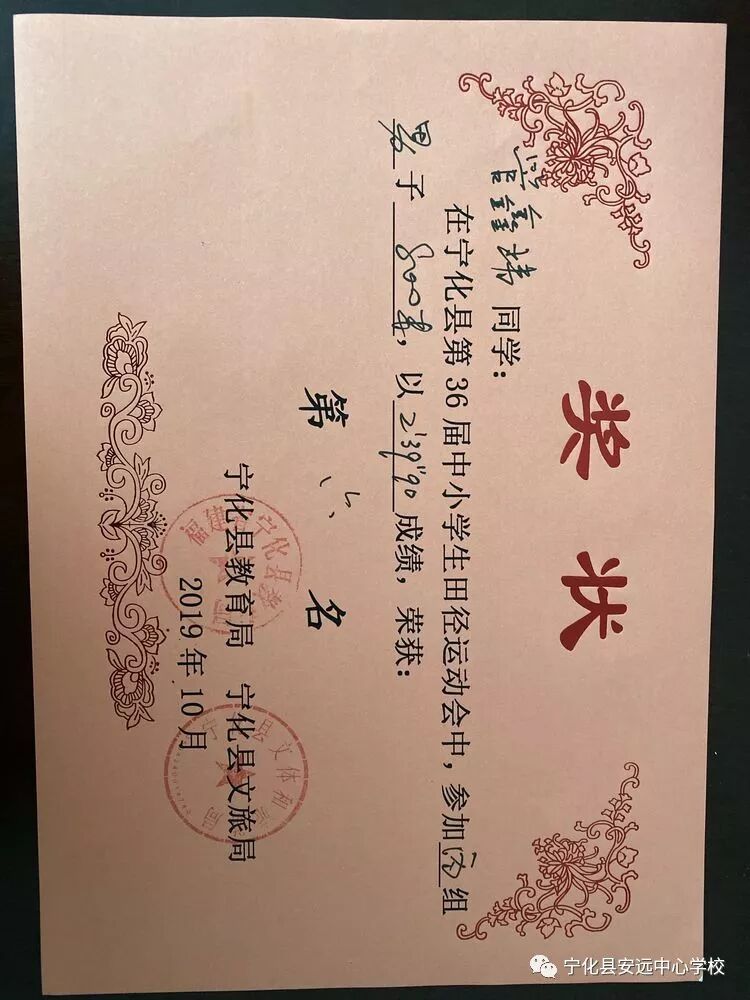 奖状
同学:
在宁化县第36届中小学生田径运动会中，参加 组
男子800米，以2'39"90成绩，荣获:
第六名
宁化县教育局 宁化县文旅局
2019年10月
宁化县安远中心学校